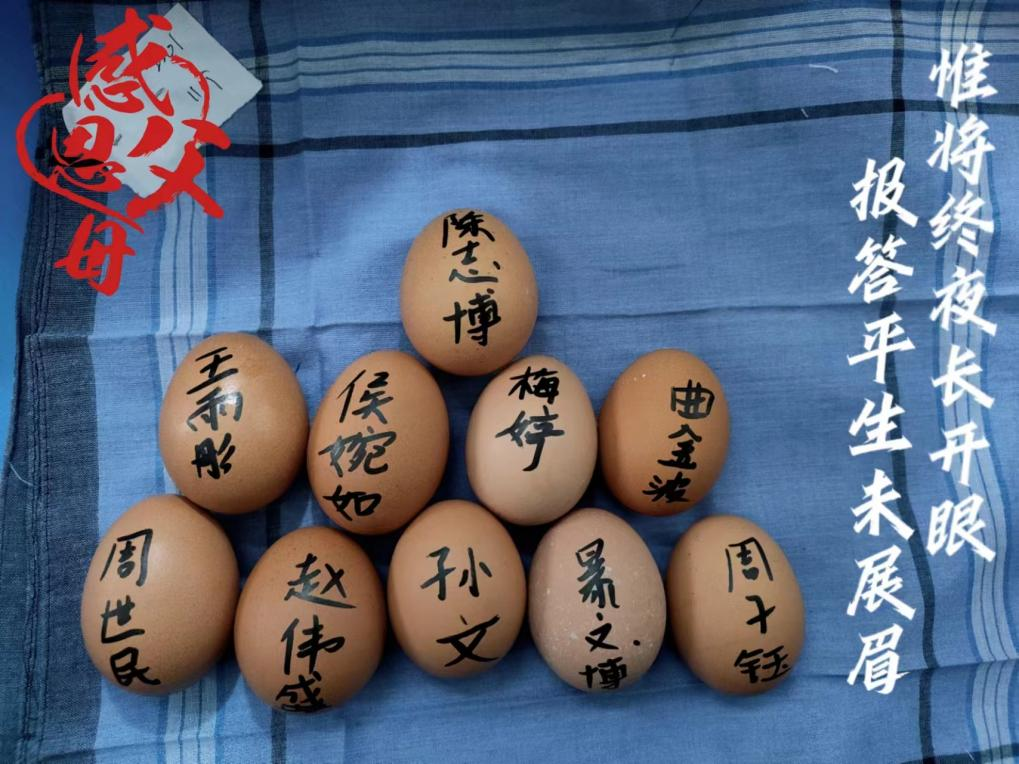 感恩父母
惟将终夜长开眼
报答平生未展眉
陈志博
王雨彤
侯婉如
梅婷
曲金波
周世民
赵伟盛
孙文
暴文博
周子钰